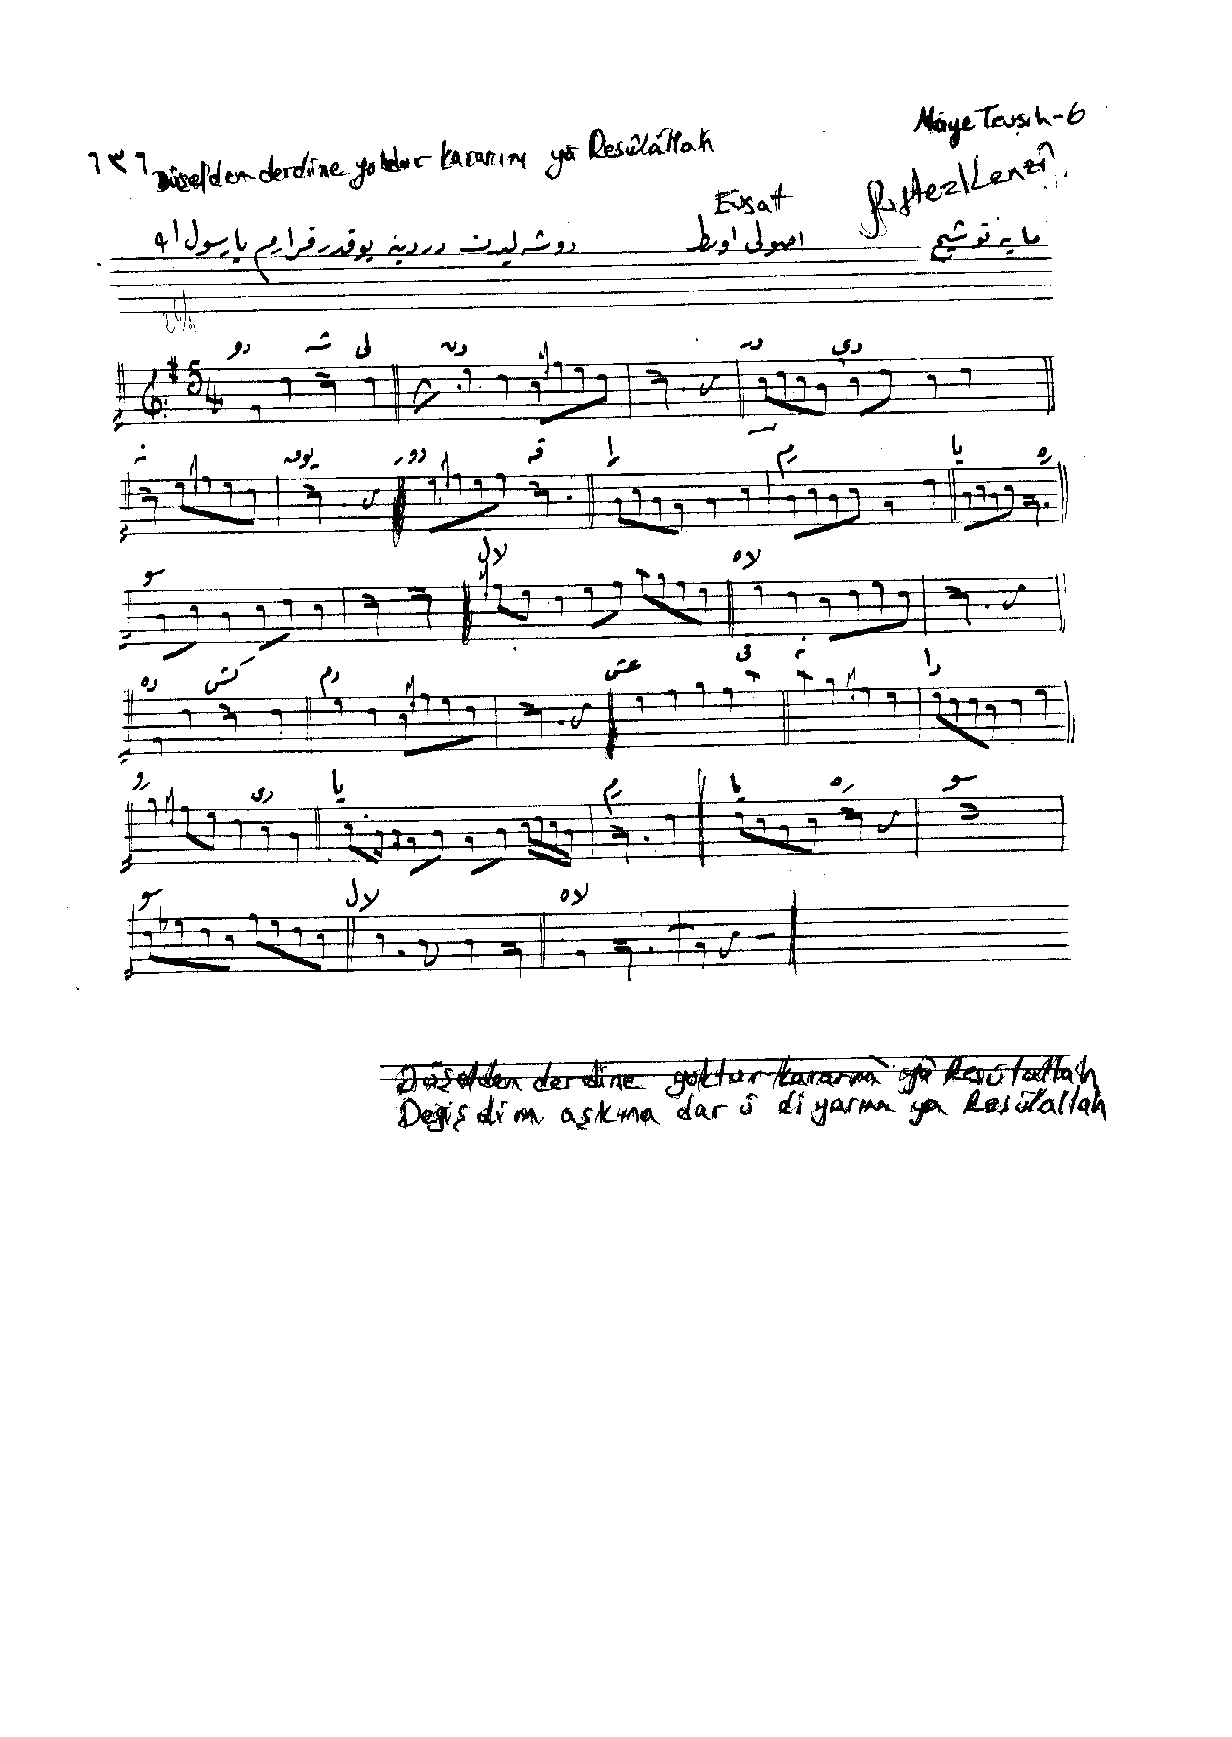 Mâye Tevşih-6
٦٣٦ Düşelden derdine yoktur kararım yâ Resûlâllah
Evsat
مايه توشيح اصولى اوسط دوشه ليدن دردينه يوقدر قرارم يا رسول الله
5
4
دو شه لى دن در دى
نه يوق دور قـ را رم يا ره
سو لال لاه
ده كش دم عش قى نه را
رى يا رم يا ره سو
سو لال لاه
Düşelden derdine yoktur kararım yâ Resûlallah
Değişdim aşkına dar û diyarım ya Resûlallah